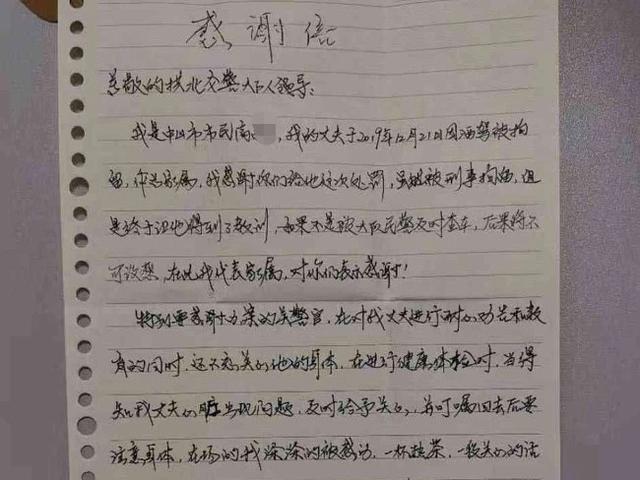 感谢信
尊敬的拱北交警大队领导:
我是中山市市民高，我的丈夫于2019年12月21日因酒驾被拘
留，作为家属，我感谢你们给他这次处罚，虽然被刑事拘留，但
是终于让他得到了教训，如果不是贵大队民警及时查车，后果将不
可设想，在此我代表家属，对你们表示感谢！
特别要感谢办案的吴警官，在对我丈夫进行耐心劝告和教
育的同时，还不忘关心他的身体，在进行健康体检时，当得
知我丈夫的脏出现问题，及时给予关心，并叮嘱回去后要
注意身体，在场的我深深的被感动，一杯热茶，一段关心的话